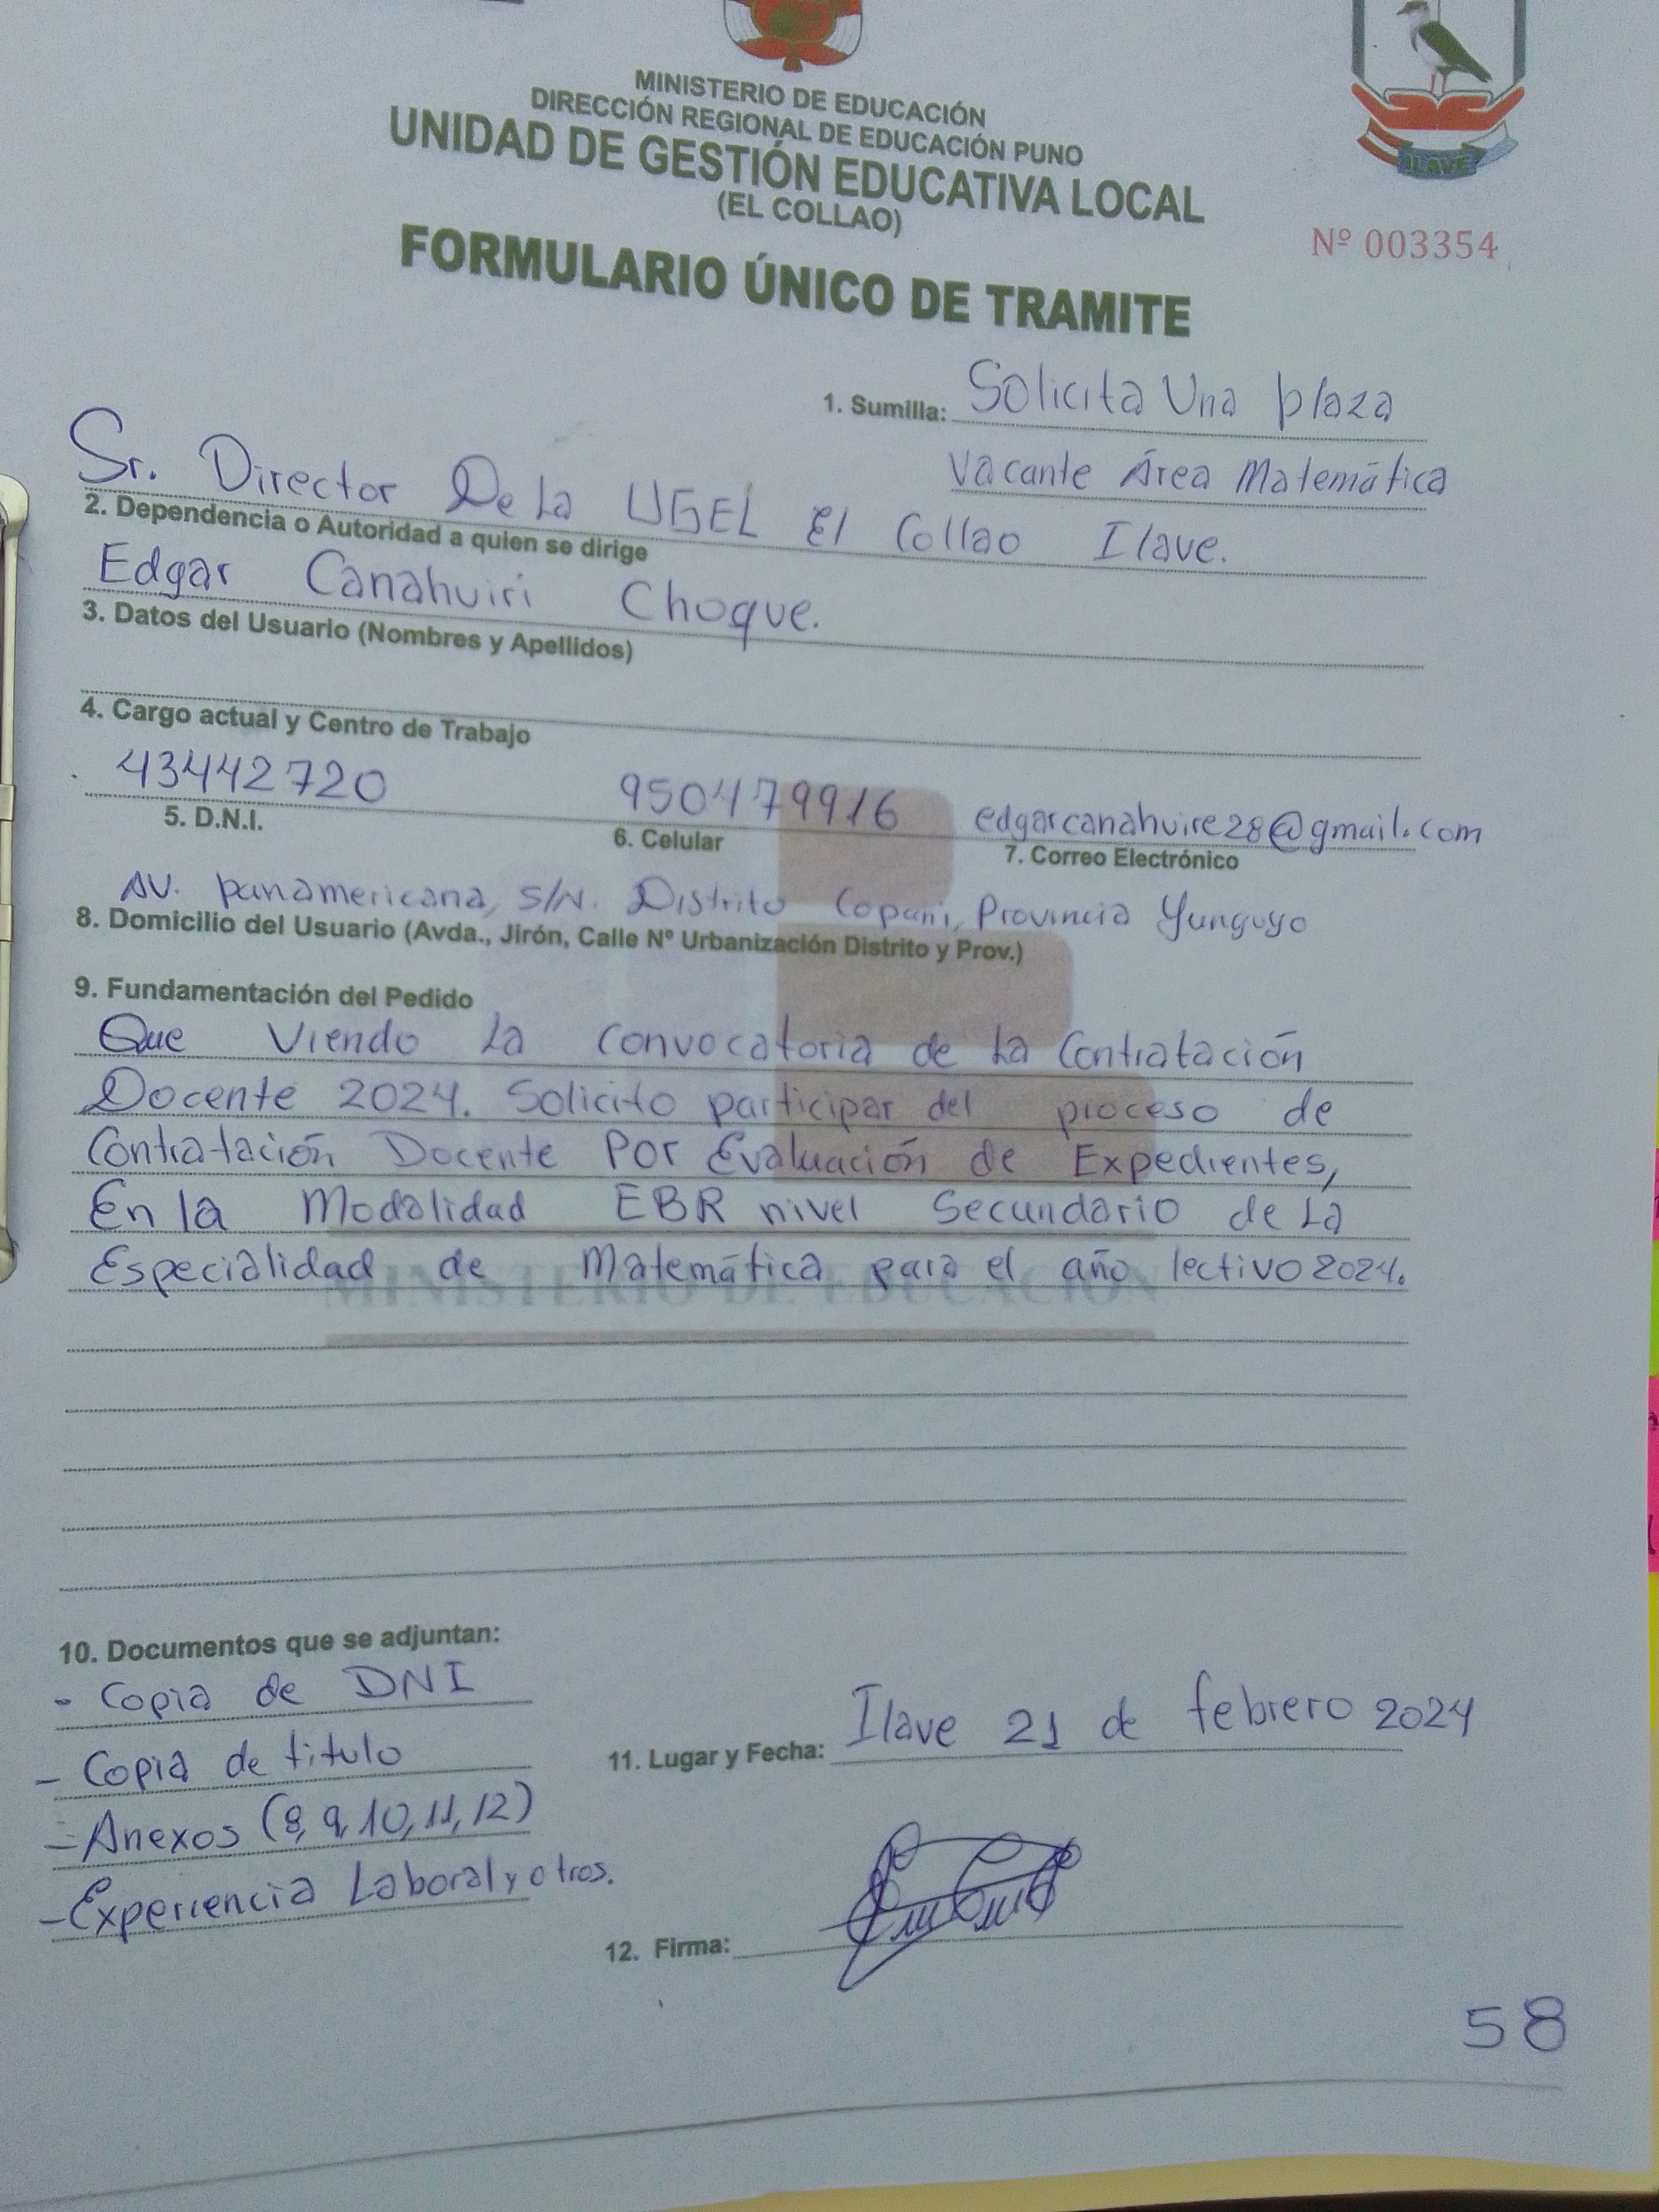 MINISTERIO DE EDUCACIÓN
DIRECCIÓN REGIONAL DE EDUCACIÓN PUNO
UNIDAD DE GESTIÓN EDUCATIVA LOCAL
(EL COLLAO)
FORMULARIO ÚNICO DE TRAMITE
ILAVE
Nº 003354
1. Sumilla: Solicita Una plaza
Vacante Área Matemática
Sr. Director De La UGEL El Collao Ilave.
2. Dependencia o Autoridad a quien se dirige
Edgar Canahuiri Choque.
3. Datos del Usuario (Nombres y Apellidos)
4. Cargo actual y Centro de Trabajo
43442720 950479916 edgarcanahuire28@gmail.com
5. D.N.I. 6. Celular 7. Correo Electrónico
AV. panamericana, S/N. Distrito Copani, Provincia Yunguyo
8. Domicilio del Usuario (Avda., Jirón, Calle Nº Urbanización Distrito y Prov.)
9. Fundamentación del Pedido
Que Viendo La Convocatoria de La Contratación
Docente 2024. Solicito participar del proceso de
Contratación Docente Por Evaluación de Expedientes,
En la Modalidad EBR nivel Secundario de La
Especialidad de Matemática para el año lectivo 2024.
MINISTERIO DE EDUCACIÓN
10. Documentos que se adjuntan:
- Copia de DNI
- Copia de titulo
- Anexos (8, 9, 10, 11, 12)
- Experiencia Laboral y otros.
11. Lugar y Fecha: Ilave 21 de febrero 2024
12. Firma:
58